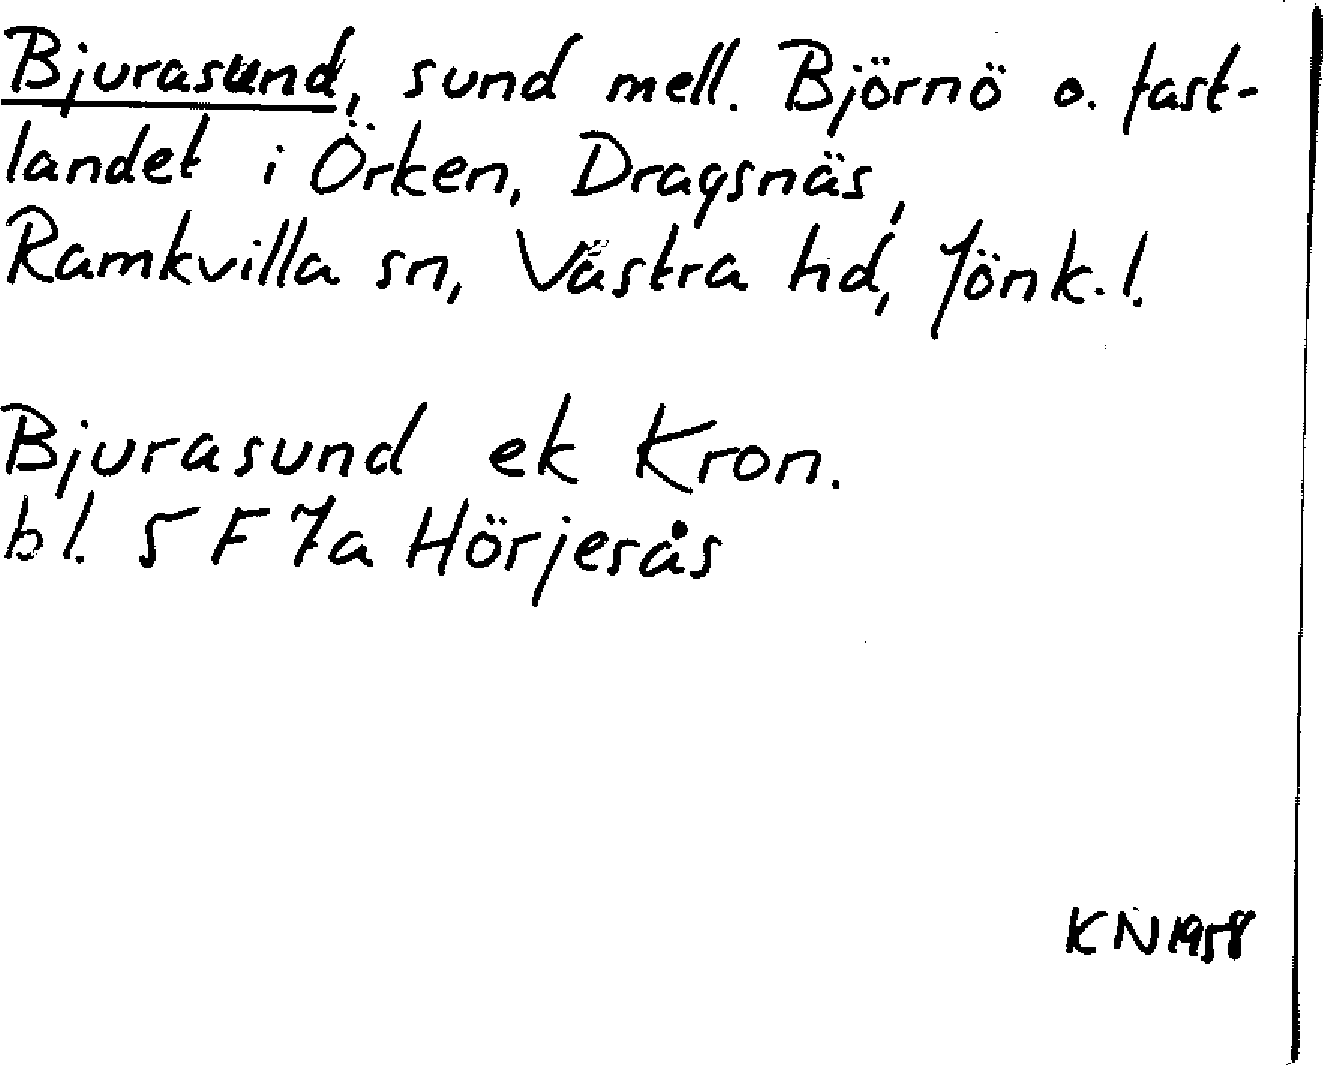 Bjurasund, sund mell. Björnö o. fast-
landet i Örken, Dragsnäs,
Ramkvilla sn, Västra hd, Jönk. l.
Bjurasund ek Kron.
bl. 5 F 7a Hörjesås
KN 1958